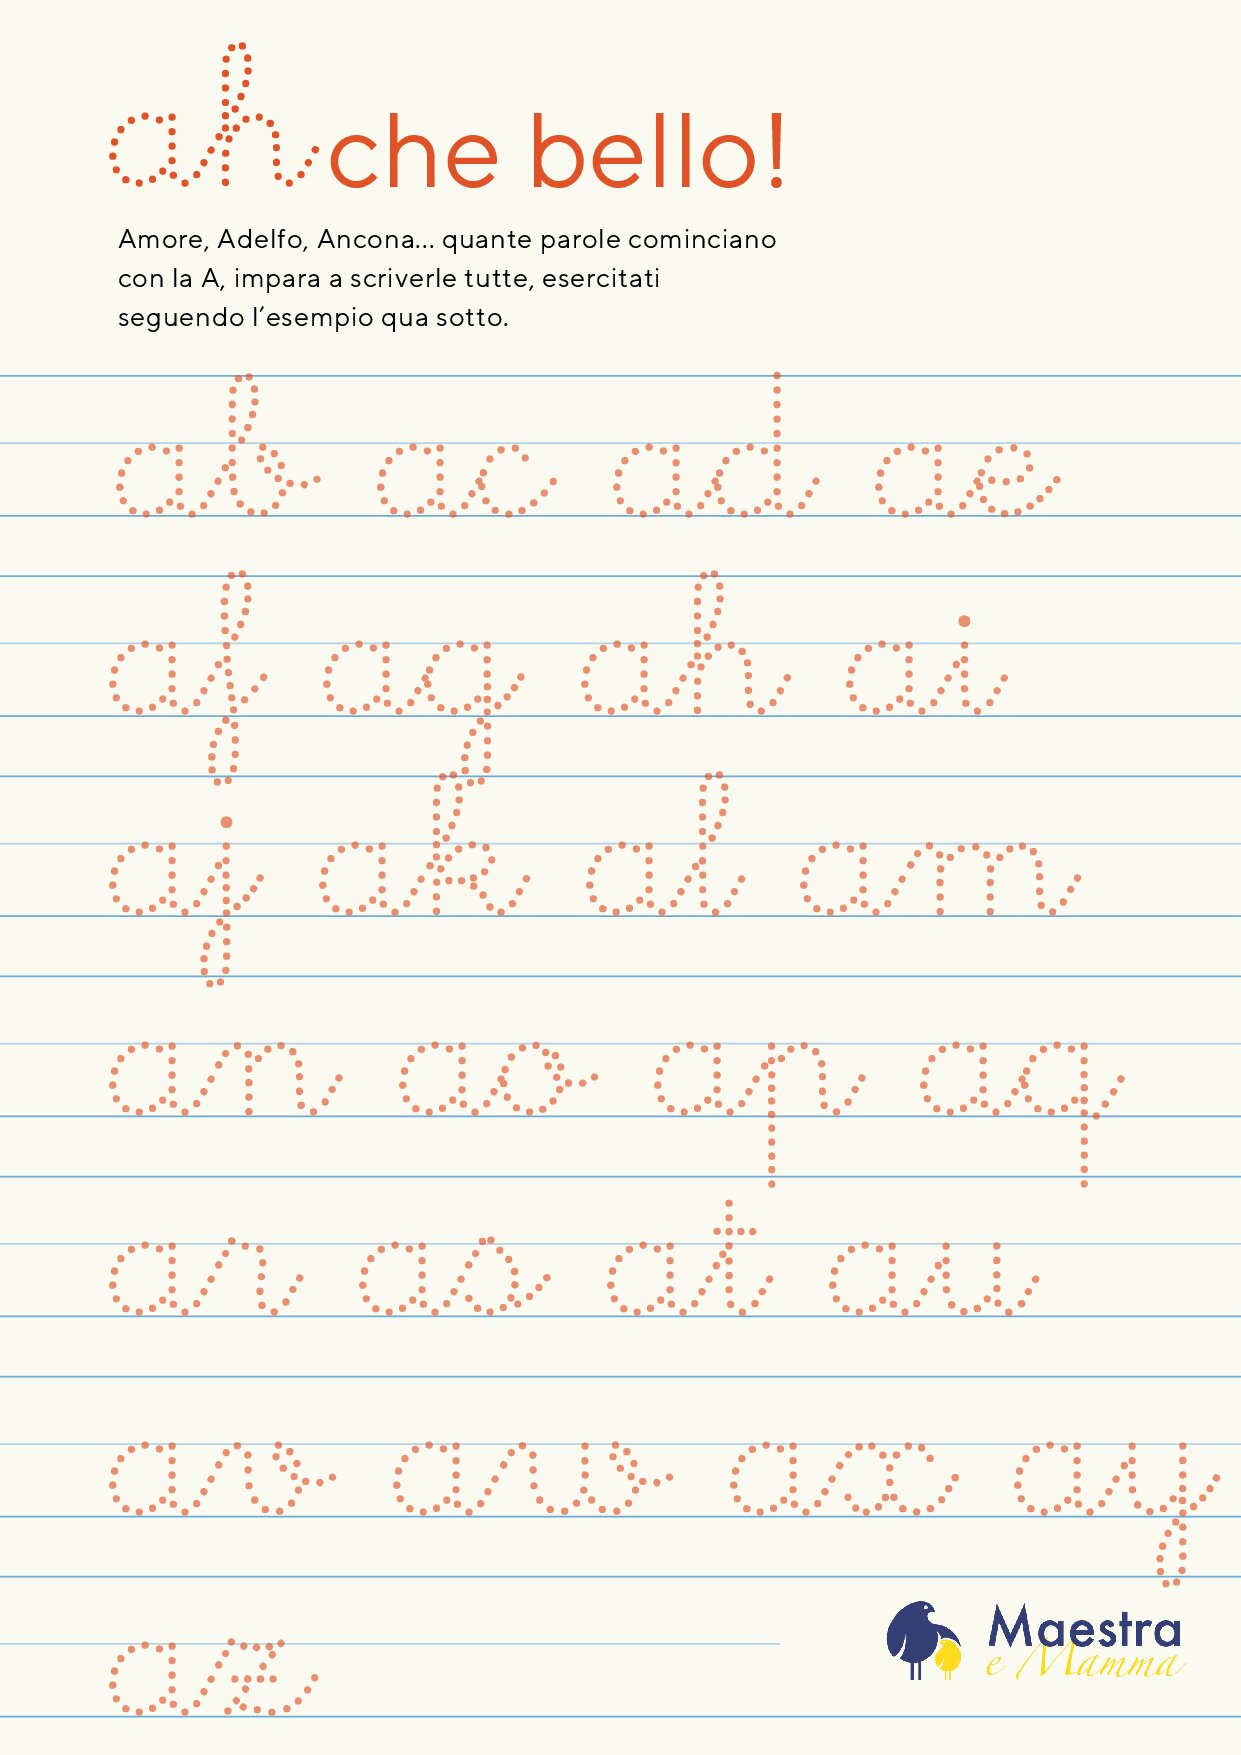 ah che bello!
Amore, Adelfo, Ancona... quante parole cominciano
con la A, impara a scriverle tutte, esercitati
seguendo l’esempio qua sotto.
ab ac ad ae
af ag ah ai
aj ak al am
an ao ap aq
ar as at au
av aw ax ay
az
Maestra
e Mamma